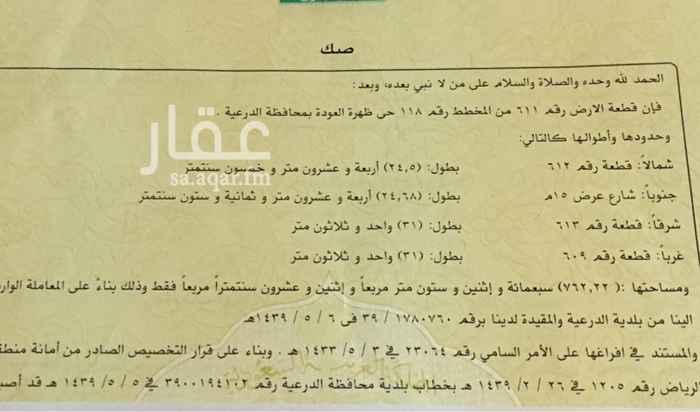 صك
الحمد لله وحده والصلاة والسلام على من لا نبي بعده، وبعد:
فإن قطعة الارض رقم ٦١١ من المخطط رقم ١١٨ حي ظهرة العودة بمحافظة الدرعية .
وحدودها وأطوالها كالتالي:
شمالاً: قطعة رقم ٦١٢ بطول: (٢٤,٥) أربعة و عشرون متر و خمسون سنتمتر
جنوباً: شارع عرض ١٥م بطول: (٢٤,٦٨) أربعة و عشرون متر و ثمانية و ستون سنتمتر
شرقاً: قطعة رقم ٦١٣ بطول: (٣١) واحد و ثلاثون متر
غرباً: قطعة رقم ٦٠٩ بطول: (٣١) واحد و ثلاثون متر
ومساحتها :( ٧٦٢,٢٢) سبعمائة و إثنين و ستون متر مربعاً و إثنين و عشرون سنتمتراً مربعاً فقط وذلك بناءً على المعاملة
الينا من بلدية الدرعية والمقيدة لدينا برقم ١٧٨٠٧٦٠ / ٣٩ في ٦ / ٥ / ١٤٣٩هـ
والمستند في افراغها على الأمر السامي رقم ٢٣٠٦٤ في ٣ / ٥/ ١٤٣٣ هـ . وبناء على قرار التخصيص الصادر من أمانة
الرياض رقم ١٢٠٥ في ٢٦ / ٢/ ١٤٣٩ هـ بخطاب بلدية محافظة الدرعية رقم ٣٩٠٠١٩٤١٠٢ في ٥ / ٥/ ١٤٣٩ هـ قد
عقار
sa.aqar.fm